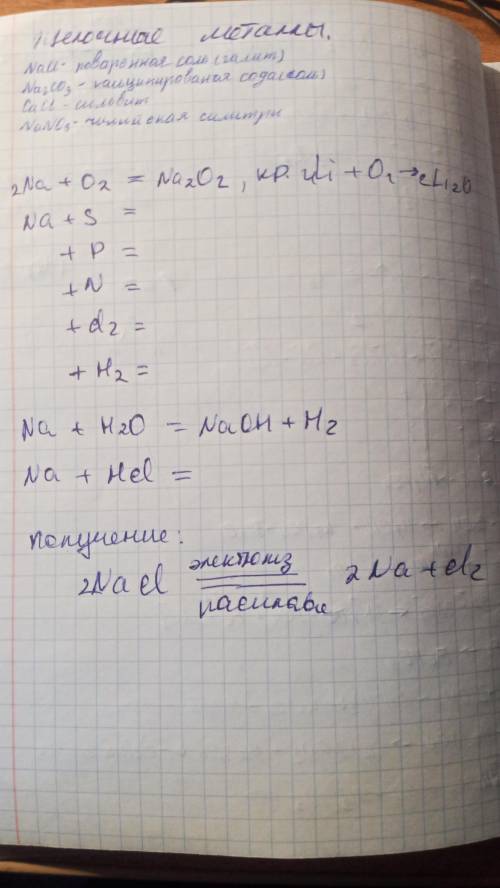 Щелочные металлы.
NaCl - поваренная соль (галит)
Na₂CO₃ - кальцинированая сода (сол)
CaCl - сильвит
NaNO₃ - чилийская силитры
2Na + O₂ = Na₂O₂, кр. 4Li + O₂ → 2Li₂O
Na + S =
+ P =
+ N =
+ Cl₂ =
+ H₂ =
Na + H₂O = NaOH + H₂
Na + HCl =
получение:
электролиз
2NaCl ══ 2Na + Cl₂
расплава